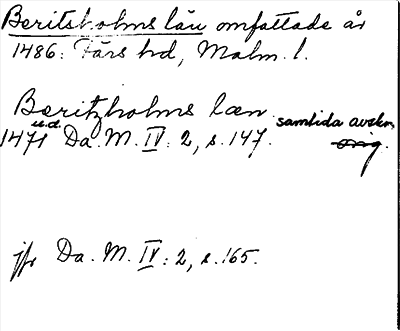 Beritsholms län omfattade år
1486: Färs hd, Malm. l.
Beritzholms læn. samtida avskr.
u.d.
1471 Da. M. IV: 2, s. 147. orig.
jfr Da. M. IV: 2, s. 165.